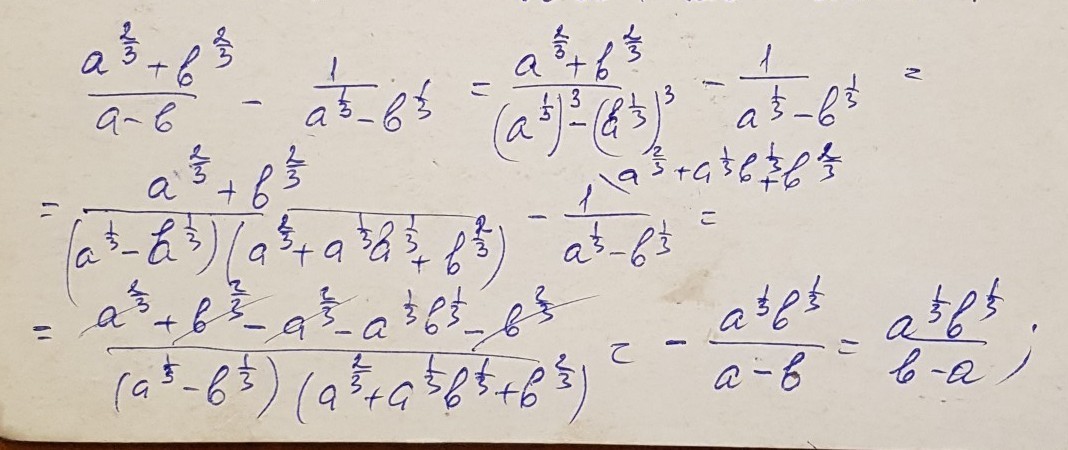 \frac{a^{\frac{2}{3}}+b^{\frac{2}{3}}}{a-b} - \frac{1}{a^{\frac{1}{3}}-b^{\frac{1}{3}}} = \frac{a^{\frac{2}{3}}+b^{\frac{2}{3}}}{(a^{\frac{1}{3}})^3-(b^{\frac{1}{3}})^3} - \frac{1}{a^{\frac{1}{3}}-b^{\frac{1}{3}}} =
= \frac{a^{\frac{2}{3}}+b^{\frac{2}{3}}}{(a^{\frac{1}{3}}-b^{\frac{1}{3}})(a^{\frac{2}{3}}+a^{\frac{1}{3}}b^{\frac{1}{3}}+b^{\frac{2}{3}})} - \frac{1 \backslash a^{\frac{2}{3}}+a^{\frac{1}{3}}b^{\frac{1}{3}}+b^{\frac{2}{3}}}{a^{\frac{1}{3}}-b^{\frac{1}{3}}} =
= \frac{a^{\frac{2}{3}}+b^{\frac{2}{3}}-a^{\frac{2}{3}}-a^{\frac{1}{3}}b^{\frac{1}{3}}-b^{\frac{2}{3}}}{(a^{\frac{1}{3}}-b^{\frac{1}{3}})(a^{\frac{2}{3}}+a^{\frac{1}{3}}b^{\frac{1}{3}}+b^{\frac{2}{3}})} = -\frac{a^{\frac{1}{3}}b^{\frac{1}{3}}}{a-b} = \frac{a^{\frac{1}{3}}b^{\frac{1}{3}}}{b-a};